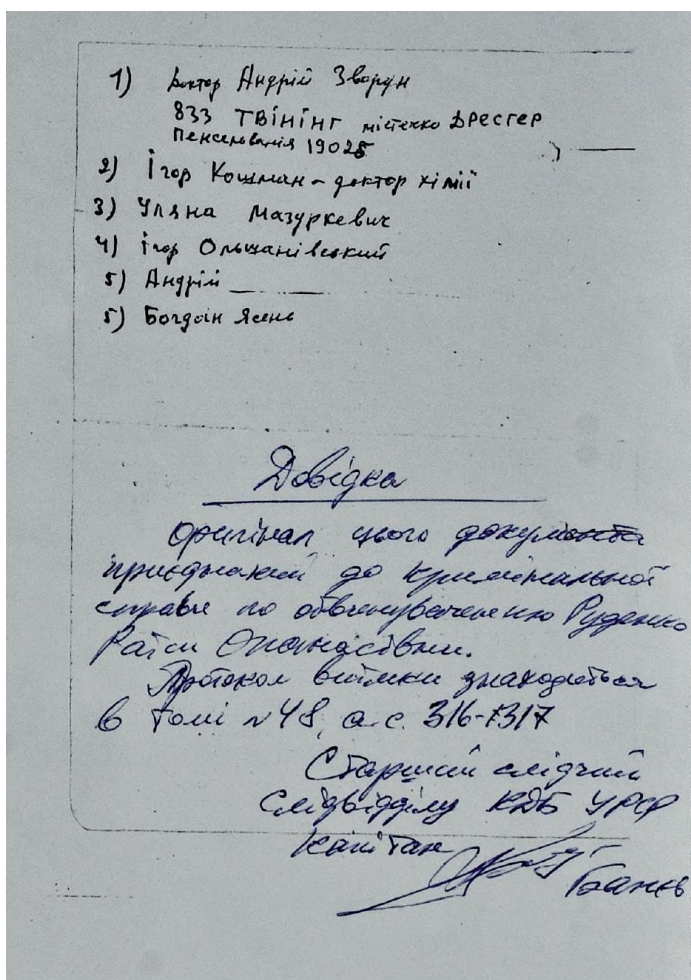 1) Доктор Андрій Зворун
833 ТВІНІНГ містечко ДРЕСГЕР
Пенсильванія 19025
2) Ігор Кошман – доктор хімії
3) Уляна Мазуркевич
4) Ігор Ольшанівський
5) Андрій
5) Богдан Ясень
Довідка
Оригінал цього документа
приєднаний до кримінальної
справи по обвинуваченню Руденко
Раїси Опанасівни.
Протокол виїмки знаходиться
в томі №48, а.с. 316-317
Старший слідчий
Слідвідділу КДБ УРСР
капітан